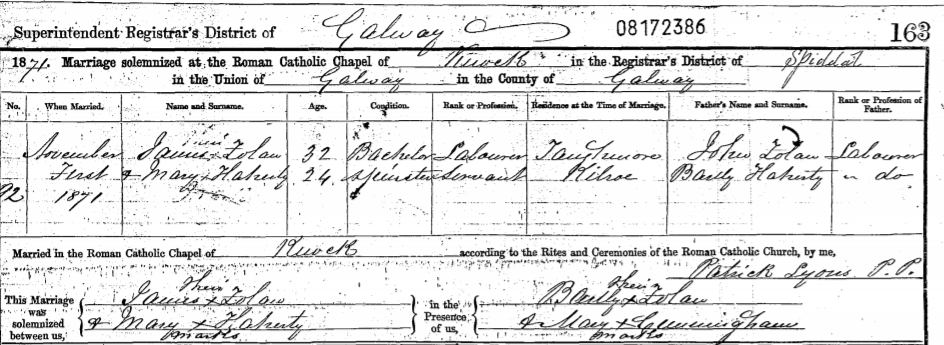 Superintendent Registrar's District of Galway 08172386 163
1871. Marriage solemnized at the Roman Catholic Chapel of in the Registrar's District of Spiddal
in the Union of Galway in the County of Galway
No. When Married. Name and Surname. Age. Condition. Rank or Profession. Residence at the Time of Marriage. Father's Name and Surname. Rank or Profession of Father.
their
November James + Folan 32 Bachelor Labourer John Folan Labourer
First & Mary + Flaherty 24 Spinster Servant Kilroe Bartly Flaherty " do
92 1871
Married in the Roman Catholic Chapel of according to the Rites and Ceremonies of the Roman Catholic Church, by me,
Patrick Lyons P.P.
their their
This Marriage was solemnized between us, James + Folan in the Presence of us, Bartly + Folan
& Mary + Flaherty & Mary + Cunningham
marks marks